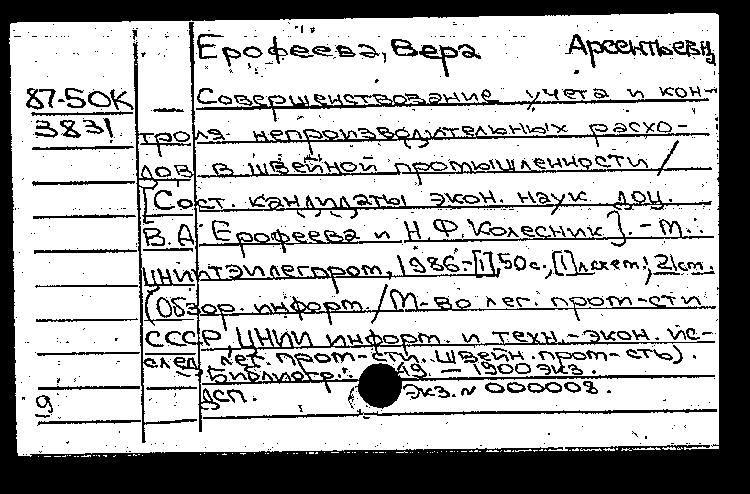 Ерофеева, Вера Арсентьевна
87-5ОК
3831
— Совершенствование учета и кон-
троля непроизводительных расхо-
дов в швейной промышленности /
[Сост. кандидаты экон. наук доц.
В.А. Ерофеева и Н.Ф. Колесник]. - М.:
ЦНИИТЭИлегпром, 1986.-[1], 50 с., [1] л.схем.; 21 см.
(Обзор. информ. / М-во лег. пром-сти
СССР, ЦНИИ информ. и техн.-экон. ис-
след. лег. пром-сти. Швейн. пром-сть).
Библиогр.: 49. — 1900 экз.
ДСП. экз. № 000008.
9